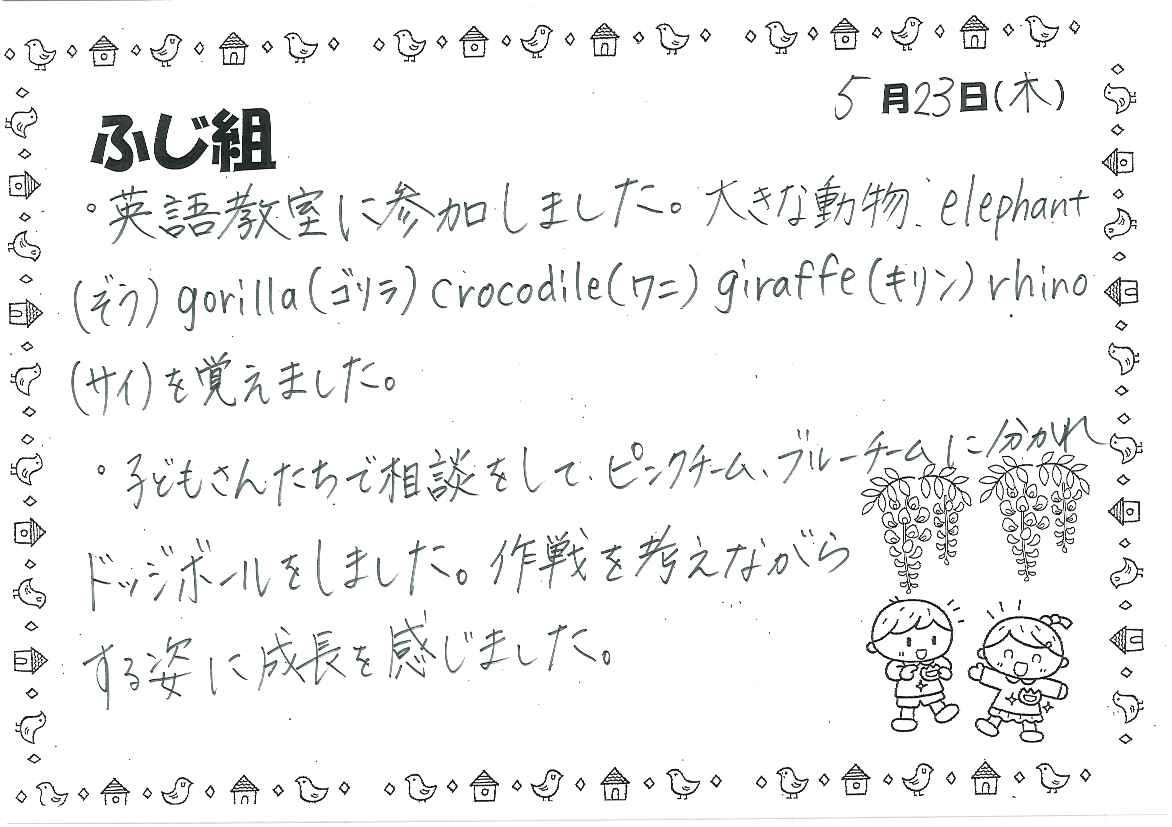 5月23日(木)
ふじ組
・英語教室に参加しました。大きな動物、elephant
(ぞう) gorilla(ゴリラ) crocodile(ワニ) giraffe(キリン) rhino
(サイ)を覚えました。
・子どもさんたちで相談をして、ピンクチーム、ブルーチームに分かれ
ドッジボールをしました。作戦を考えながら
する姿に成長を感じました。